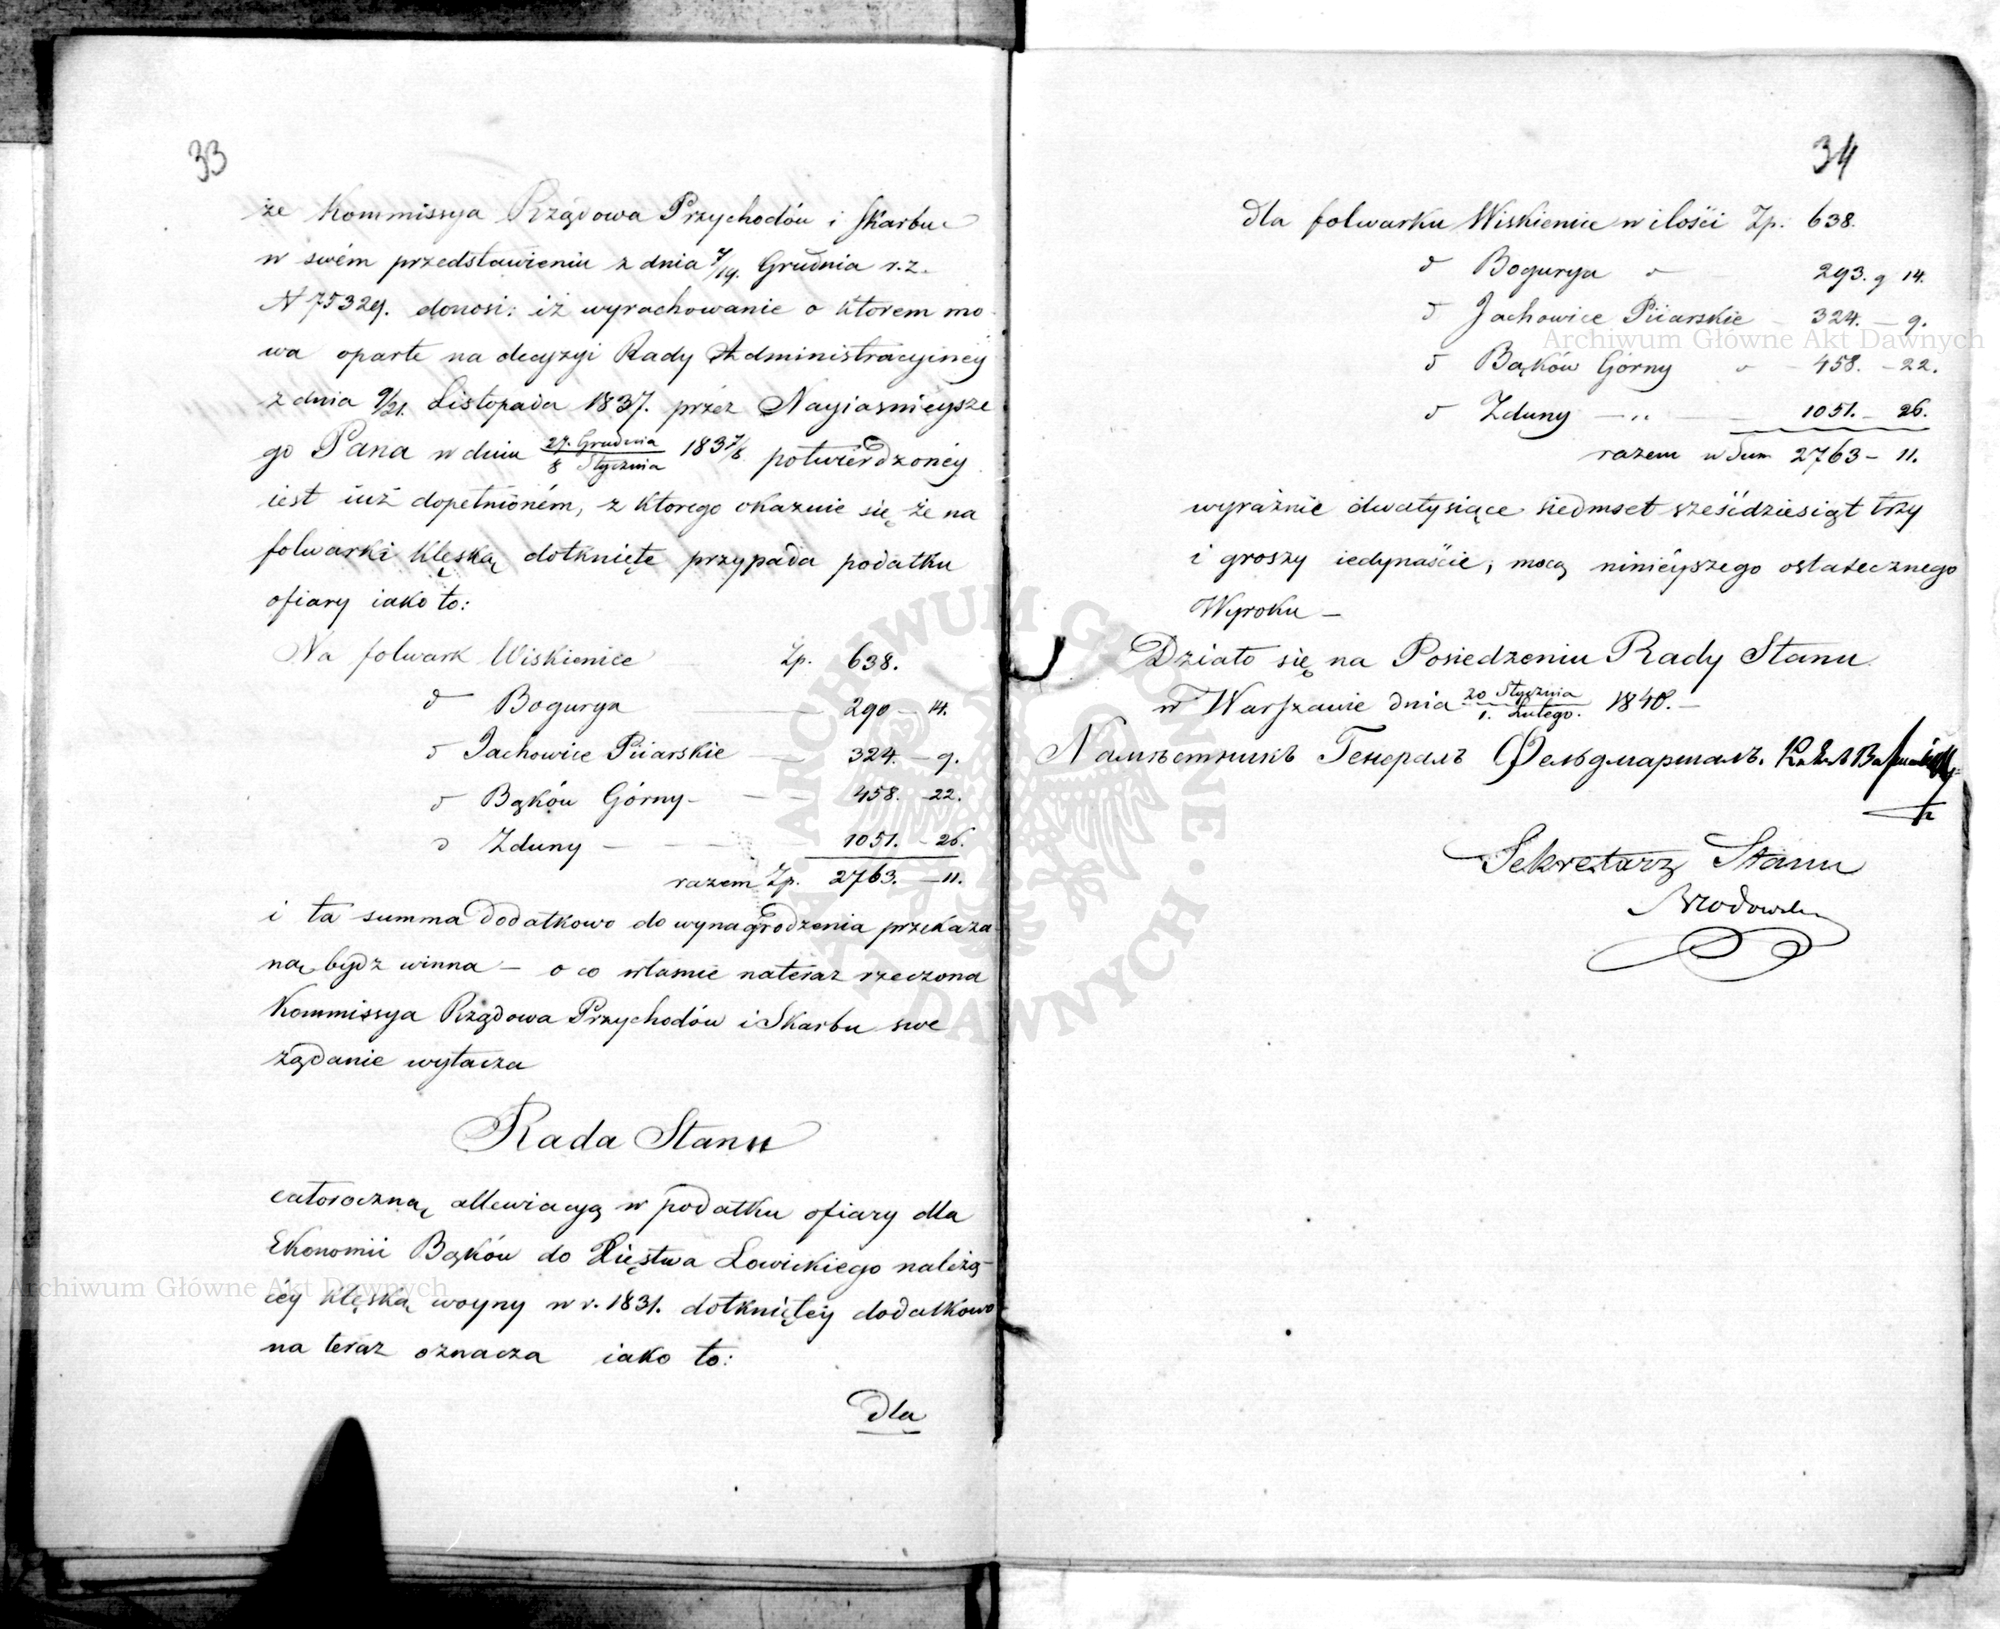 33
że Kommissya Rządowa Przychodów i Skarbu
w swém przedstawieniu z dnia 7/19. Grudnia r.z.
N 75329. donosi: iż wyrachowanie o ktorem mo-
wa oparte na decyzyi Rady Administracyiney
z dnia 9/21. Listopada 1837. przez Nayiasnieysze
go Pana w dniu 27. Grudnia / 8 Stycznia 1837/8 potwierdzoney
iest iuż dopełnioném, z ktorego okazuie się że na
folwarki klęską dotknięte przypada podatku
ofiary iako to:
Na folwark Wiskienice Zp. 638.
d Bogurya — 290 — 14.
d Jachowice Piiarskie — 324. — 9.
d Bąków Górny — 458. — 22.
d Zduny — 1051. — 26.
razem Zp. 2763. — 11.
i ta summa dodatkowo do wynagrodzenia przekaza
ną bydz winna — o co własnie nateraz rzeczona
Kommissya Rządowa Przychodów i Skarbu swe
żądanie wytacza
Rada Stanu
całoroczną allewiacyą w podatku ofiary dla
Ekonomii Bąków do Xięstwa Łowickiego należą-
cey klęską woyny w r. 1831. dotkniętey dodatkowo
na teraz oznacza iako to:
Dla
34
dla folwarku Wiskienice w ilości Zp. 638.
d Bogurya d 293. g 14.
d Jachowice Piiarskie — 324. — 9.
d Bąków Górny — 458. — 22.
d Zduny — 1051. — 26.
razem w Sum 2763 — 11.
wyraźnie dwatysiące siedmset sześćdziesiąt trzy
i groszy iedynaście, mocą ninieyszego ostatecznego
Wyroku —
Działo się na Posiedzeniu Rady Stanu
w Warszawie dnia 20 Stycznia / 1. Lutego. 1840. —
Намѣстникъ Генералъ Фельдмаршалъ.
Sekretarz Stanu
Brodowski
Archiwum Główne Akt Dawnych
Archiwum Główne Akt Dawnych
ARCHIWUM GŁÓWNE AKT DAWNYCH